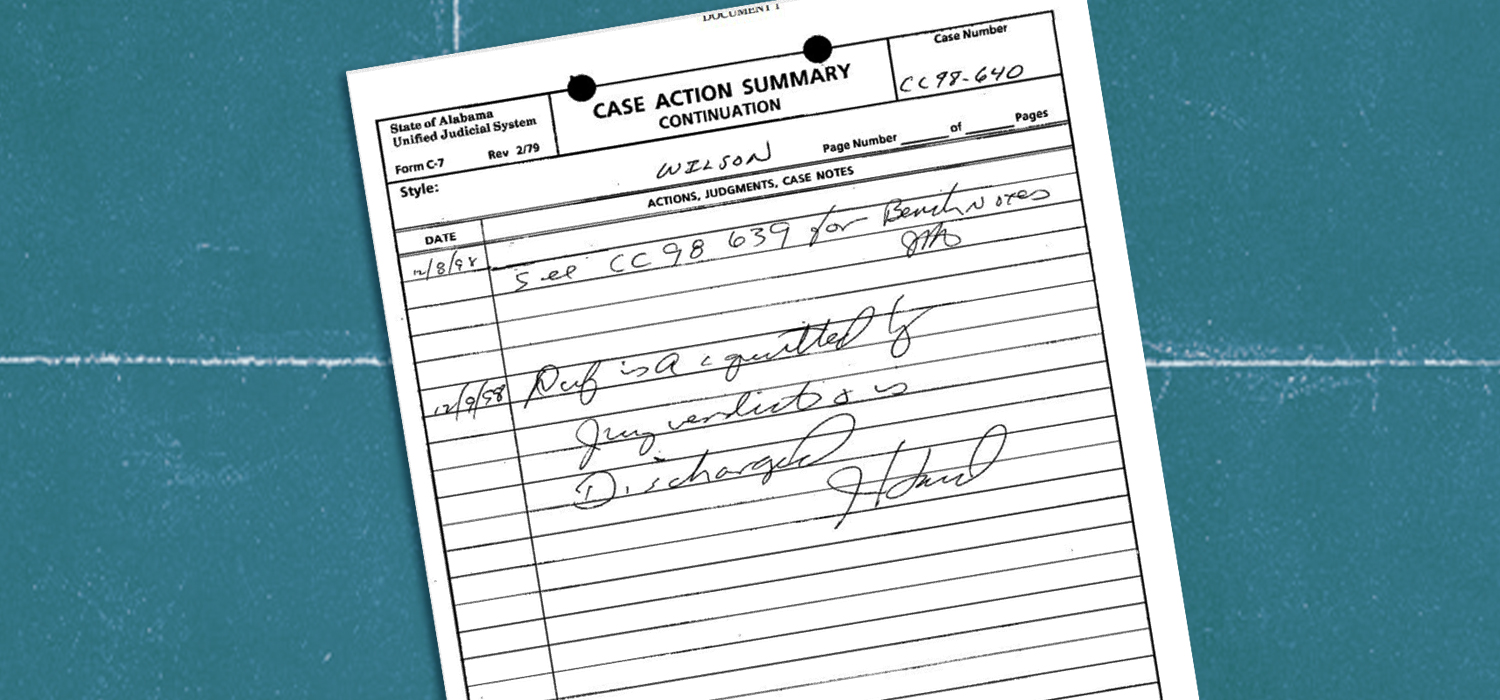 DOCUMENT 1
State of Alabama
Unified Judicial System
Form C-7 Rev 2/79
CASE ACTION SUMMARY
CONTINUATION
Case Number
CC98-640
Style: WILSON
Page Number ____ of ____ Pages
DATE
ACTIONS, JUDGMENTS, CASE NOTES
12/8/98 See CC98 639 for Bench Notes
12/9/98 Def is Acquitted by
Jury verdict & is
Discharged